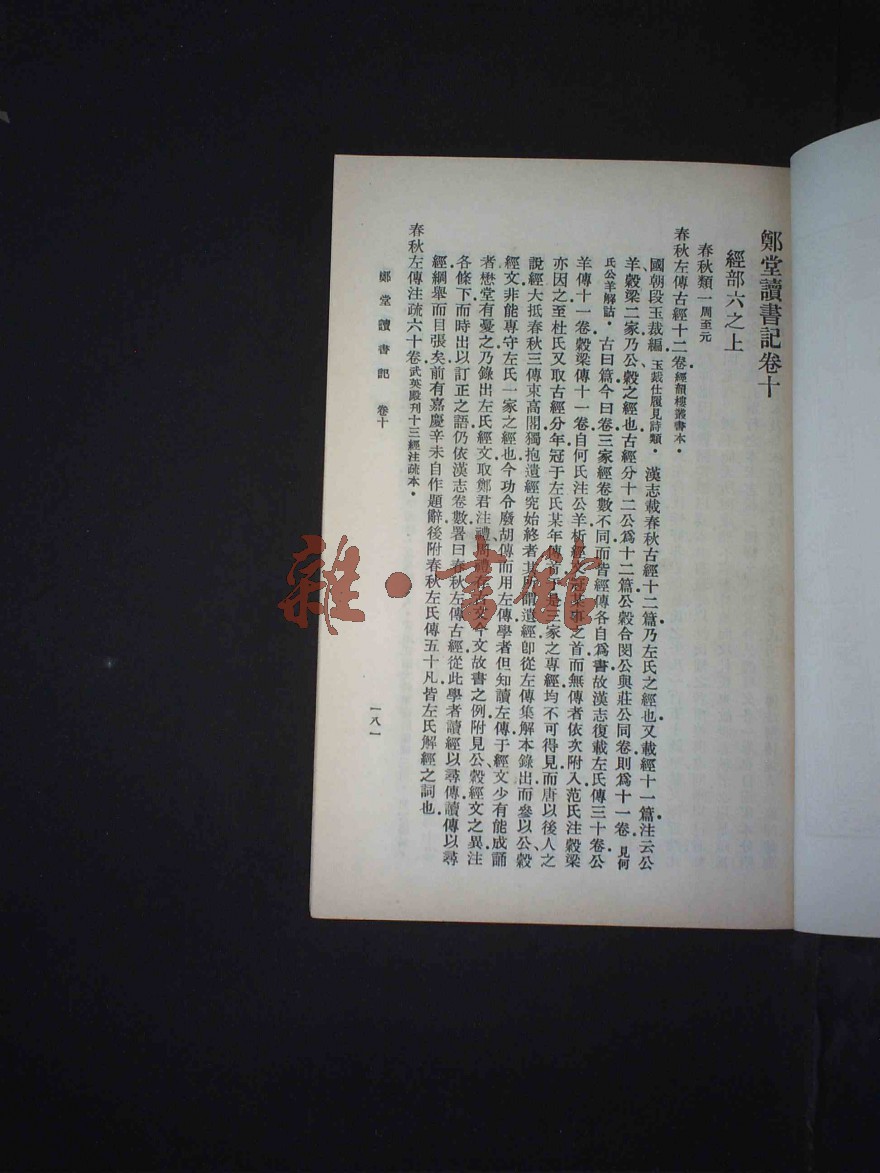 鄭堂讀書記卷十
經部六之上
春秋類一周至元
春秋左傳古經十二卷經韻樓叢書本。
國朝段玉裁編。玉裁仕履見詩類。漢志載春秋古經十二篇乃左氏之經也又載經十一篇注云公
羊穀梁二家乃公穀之經也古經分十二公爲十二篇公穀合閔公與莊公同卷則爲十一卷。見何
氏公羊解詁。古曰篇今曰卷三家經卷數不同而皆經傳各自爲書故漢志復載左氏傳三十卷公
羊傳十一卷穀梁傳十一卷自何氏注公羊析經文冠某事之首而無傳者依次附入范氏注穀梁
亦因之至杜氏又取古經分年冠于左氏某年傳首于是三家之專經均不可得見而唐以後人之
說經大抵春秋三傳束高閣獨抱遺經究始終者其所謂遺經卽從左傳集解本錄出而參以公穀
經文非能專守左氏一家之經也今功令廢胡傳而用左傳學者但知讀左傳于經文少有能成誦
者懋堂有憂之乃錄出左氏經文取鄭君注禮周禮存古文今文故書之例附見公穀經文之異注
各條下而時出以訂正之語仍依漢志卷數署曰春秋左傳古經從此學者讀經以尋傳讀傳以尋
經綱舉而目張矣前有嘉慶辛未自作題辭後附春秋左氏傳五十凡皆左氏解經之詞也。
春秋左傳注疏六十卷武英殿刊十三經注疏本。
鄭堂讀書記 卷十
一八一
雜·書館